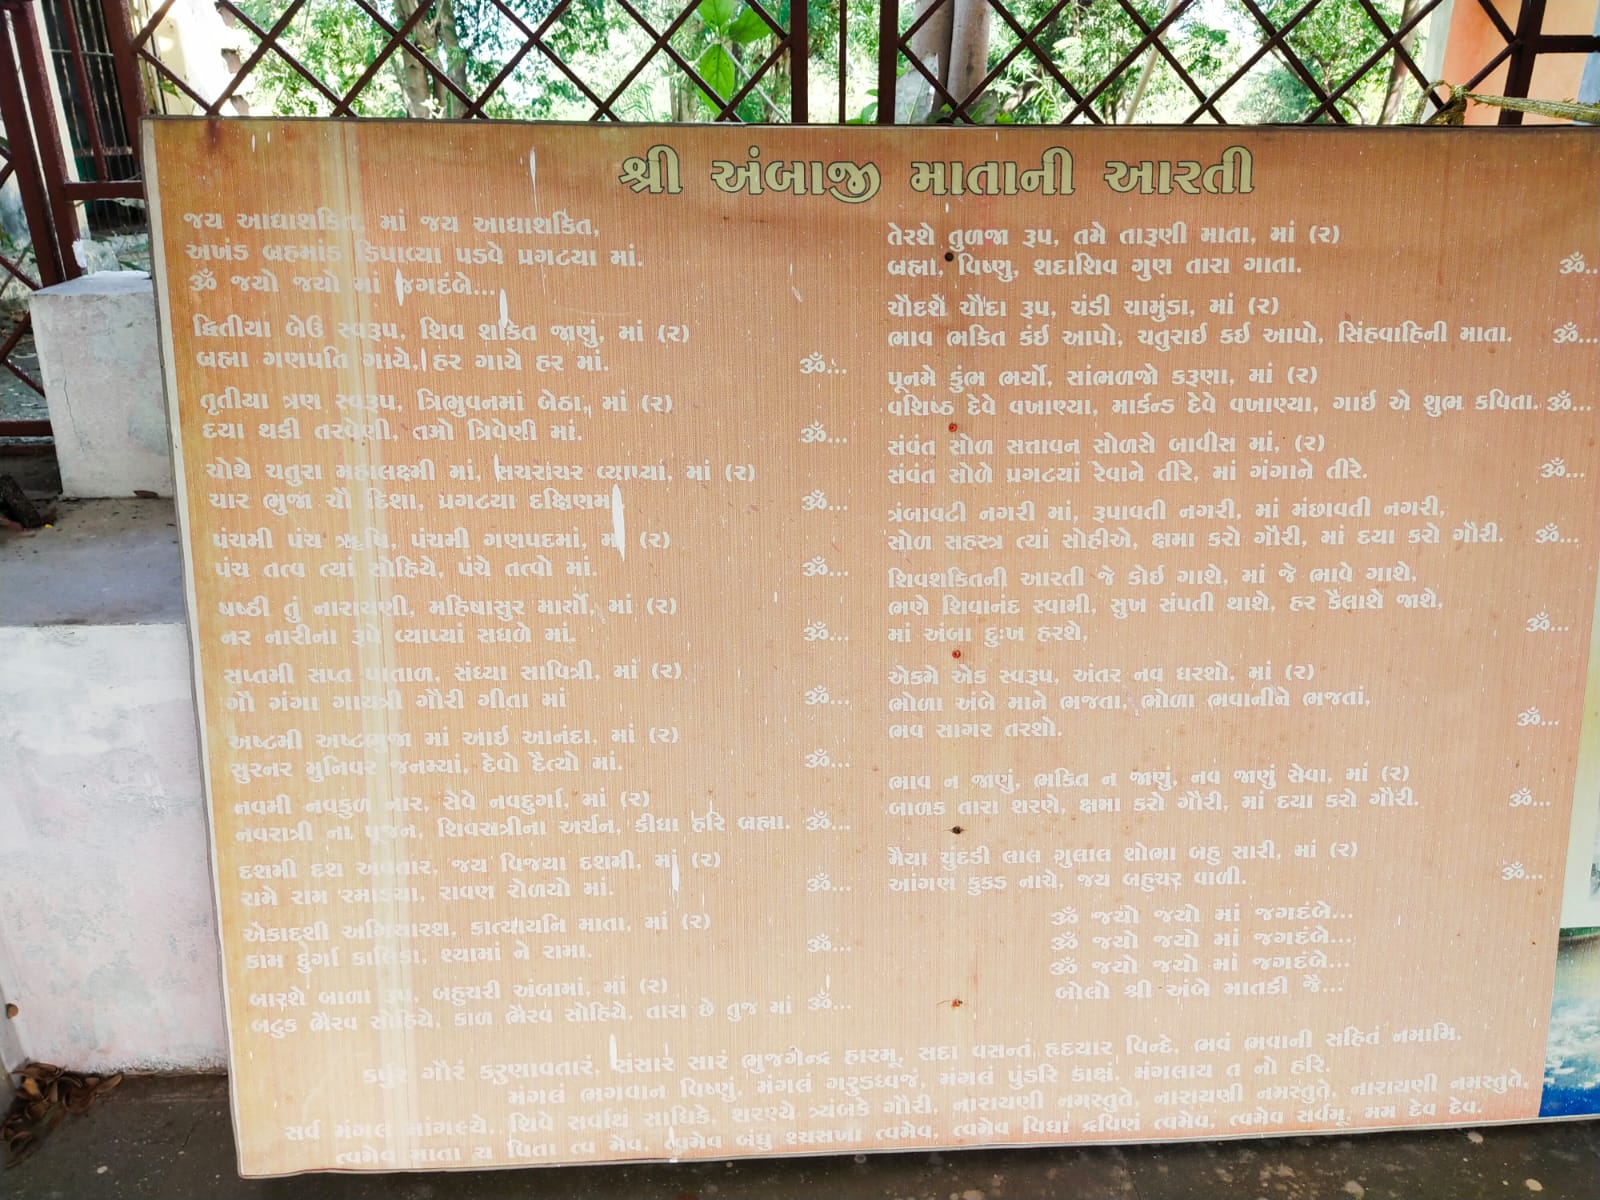 શ્રી અંબાજી માતાની આરતી
જય આદ્યાશકિત, માં જય આદ્યાશકિત,
અખંડ બ્રહમાંડ દિપાવ્યા પડવે પ્રગટયા માં.
ૐ જયો જયો માં જગદંબે...
દ્વિતીયા બેઉ સ્વરૂપ, શિવ શકિત જાણું, માં (ર)
બ્રહ્મા ગણપતિ ગાયે, હર ગાયે હર માં. ૐ...
તૃતીયા ત્રણ સ્વરૂપ, ત્રિભુવનમાં બેઠા, માં (ર)
દયા થકી તરવેણી, તમો ત્રિવેણી માં. ૐ...
ચોથે ચતુરા મહાલક્ષ્મી માં, સચરાચર વ્યાપ્યા, માં (ર)
ચાર ભુજા ચૌ દિશા, પ્રગટયા દક્ષિણમાં ૐ...
પંચમી પંચ ઋષિ, પંચમી ગણપદમાં, માં (ર)
પંચ તત્વ ત્યાં સોહિયે, પંચે તત્વો માં. ૐ...
ષષ્ઠી તું નારાયણી, મહિષાસુર માર્યો, માં (ર)
નર નારીના રૂપે વ્યાપ્યાં સઘળે માં. ૐ...
સપ્તમી સપ્ત પાતાળ, સંધ્યા સાવિત્રી, માં (ર)
ગૌ ગંગા ગાયત્રી ગૌરી ગીતા માં ૐ...
અષ્ટમી અષ્ટભુજા માં આઈ આનંદા, માં (ર)
સુરનર મુનિવર જનમ્યાં, દેવો દૈત્યો માં. ૐ...
નવમી નવકુળ નાર, સેવે નવદુર્ગા, માં (ર)
નવરાત્રી ના પૂજન, શિવરાત્રીના અર્ચન, કીધા હરિ બ્રહ્મા. ૐ...
દશમી દશ અવતાર, જય વિજયા દશમી, માં (ર)
રામે રામ રમાડયા, રાવણ રોળયો માં. ૐ...
એૈકાદશી અગિયારશ, કાત્યાયનિ માતા, માં (ર)
કામ દુર્ગા કાલિકા, શ્યામાં ને રામા. ૐ...
બારશે બાળા રૂપ, બહુચરી અંબામાં, માં (ર)
બટુક ભૈરવ સોહિયે, કાળ ભૈરવ સોહિયે, તારા છે તુજ માં ૐ...
તેરશે તુળજા રૂપ, તમે તારૂણી માતા, માં (ર)
બ્રહ્મા, વિષ્ણુ, શદાશિવ ગુણ તારા ગાતા. ૐ...
ચૌદશે ચૌદા રૂપ, ચંડી ચામુંડા, માં (ર)
ભાવ ભકિત કંઈ આપો, ચતુરાઈ કઈ આપો, સિંહવાહિની માતા. ૐ...
પૂનમે કુંભ ભર્યો, સાંભળજો કરૂણા, માં (ર)
વશિષ્ઠ દેવે વખાણ્યા, માર્કન્ડ દેવે વખાણ્યા, ગાઈ એ શુભ કવિતા. ૐ...
સંવંત સોળ સત્તાવન સોળસે બાવીસ માં, (ર)
સંવંત સોળે પ્રગટયાં રેવાને તીરે, માં ગંગાને તીરે. ૐ...
ત્રંબાવટી નગરી માં, રૂપાવતી નગરી, માં મંછાવતી નગરી,
સોળ સહસ્ત્ર ત્યાં સોહીએ, ક્ષમા કરો ગૌરી, માં દયા કરો ગૌરી. ૐ...
શિવશકિતની આરતી જે કોઈ ગાશે, માં જે ભાવે ગાશે,
ભણે શિવાનંદ સ્વામી, સુખ સંપતી થાશે, હર કૈલાશે જાશે,
માં અંબા દુઃખ હરશે, ૐ...
એકમે એક સ્વરૂપ, અંતર નવ ધરશો, માં (ર)
ભોળા અંબે માને ભજતા, ભોળા ભવાનીને ભજતાં,
ભવ સાગર તરશો. ૐ...
ભાવ ન જાણું, ભકિત ન જાણું, નવ જાણું સેવા, માં (ર)
બાળક તારા શરણે, ક્ષમા કરો ગૌરી, માં દયા કરો ગૌરી. ૐ...
મૈયા ચુંદડી લાલ ગુલાલ શોભા બહુ સારી, માં (ર)
આંગણ કુકડ નાચે, જય બહુચર વાળી. ૐ...
ૐ જયો જયો માં જગદંબે...
ૐ જયો જયો માં જગદંબે...
ૐ જયો જયો માં જગદંબે...
બોલો શ્રી અંબે માતકી જૈ...
કર્પુર ગૌરં કરુણાવતારં, સંસાર સારં ભુજગેન્દ્ર હારમ્, સદા વસન્તં હૃદયાર વિન્દે, ભવં ભવાની સહિતં નમામિ.
મંગલં ભગવાન વિષ્ણું, મંગલં ગરુડધ્વજં, મંગલં પુંડરિ કાક્ષં, મંગલાય ત નો હરિ.
સર્વ મંગલ માંગલ્યે, શિવે સર્વાથં સાધિકે, શરણ્યે ત્ર્યંબકે ગૌરી, નારાયણી નમસ્તુતે, નારાયણી નમસ્તુતે, નારાયણી નમસ્તુતે,
ત્વમેવ માતા ચ પિતા ત્વ મેવ, ત્વમેવ બંધુ શ્ચસખા ત્વમેવ, ત્વમેવ વિદ્યા દ્રવિણં ત્વમેવ, ત્વમેવ સર્વમ્ મમ દેવ દેવ.